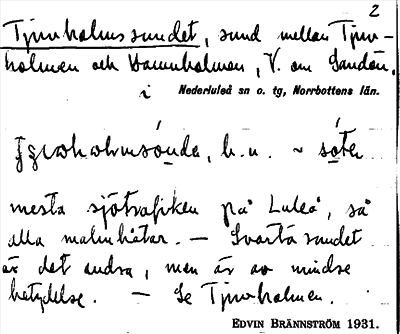 2
Tjuvholmssundet, sund mellan Tjuv-
holmen och Hamnholmen, V. om Sandön.
i Nederluleå sn o. tg, Norrbottens län.
b. u. ~
mesta sjötrafiken på Luleå, så
alla malmbåtar. — Svartösundet
är det andra, men är av mindre
betydelse. — Se Tjuvholmen.
EDVIN BRÄNNSTRÖM 1931.